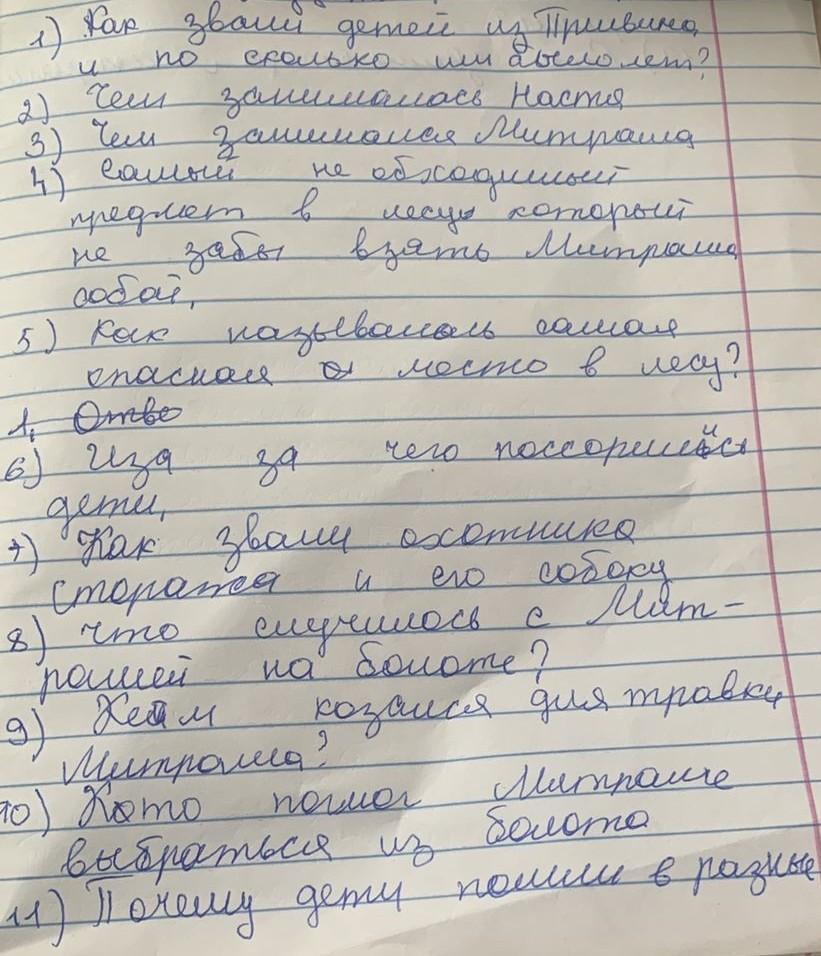 1) Как звали детей из Прившина
и по сколько им было лет?
2) Чем занималась Настя
3) Чем занимался Митраша
4) Самый не обходимый
предмет в лесу который
не забы взять Митраша
собой,
5) Как называлась самая
опасная место в лесу?
1. Отве
6) Иза за чего поссорились
дети,
7) Как звали охотника
сторатея и его собоку
8) что случилось с Мит-
рашей на болоте?
9) Кеам козался для травки
Митраша?
10) Кото помог Митраше
выбраться из болота
11) Почему дети пошли в разные